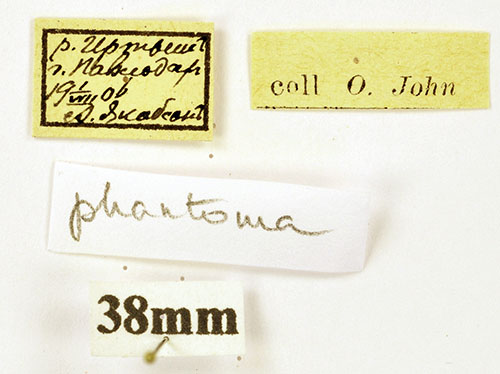 р. Иртышъ
г. Павлодар
19 1/VIII 06
А. Якобсонъ
coll O. John
phantoma
38mm